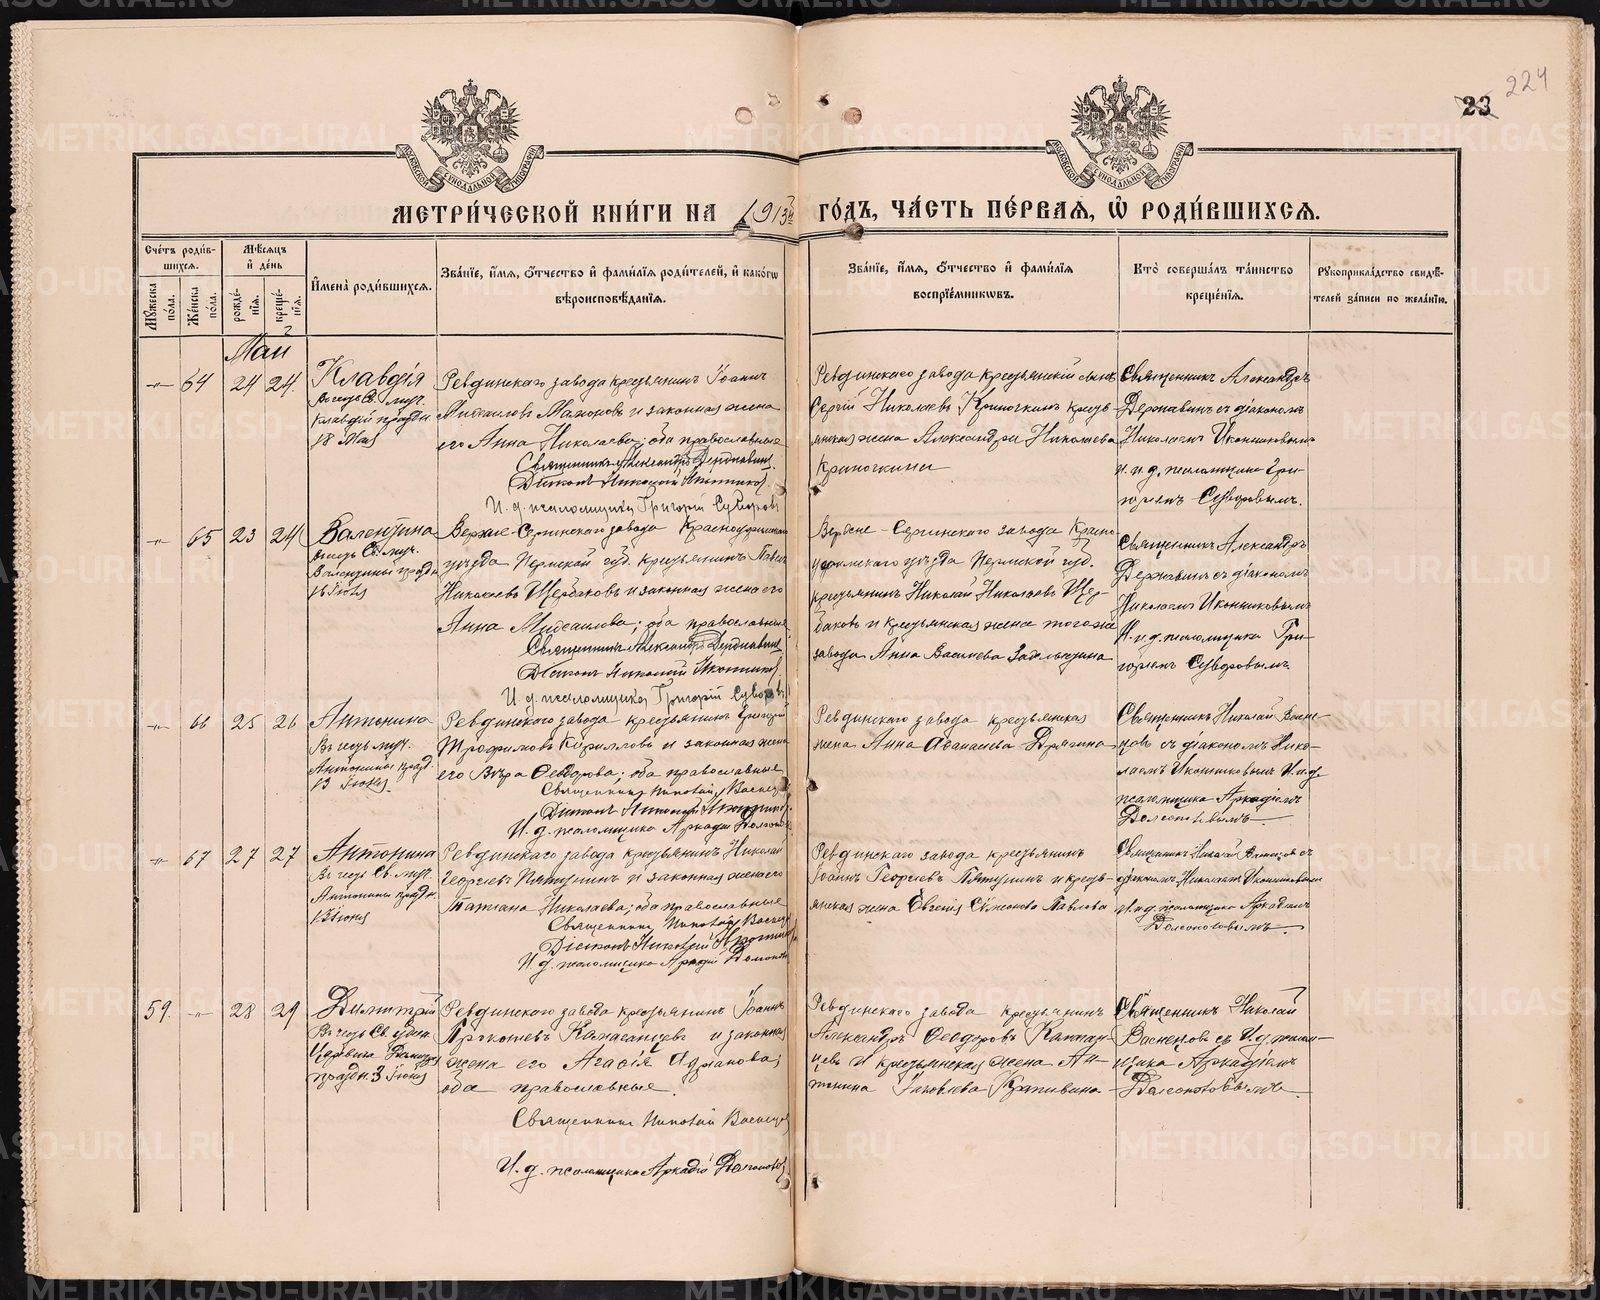 224
23
МЕТРИ́ЧЕСКОЙ КНИ́ГИ НА 1913й ГО́ДЪ, ЧА́СТЬ ПЕ́РВАЯ, Ѡ҆ РОДИ́ВШИХСЯ.
Сче́тъ роди́в-
шихся.
Мꙋ́жеска по́ла.
Же́нска по́ла.
Мѣ́сяцъ и҆ де́нь
рожде́-
нїя.
креще́-
нїя.
И҆мена̀ роди́вшихся.
Зва́нїе, и҆́мя, ѻ҆́тчество и҆ фами́лїя роди́телей, и҆ како́гѡ
вѣроисповѣ́данїя.
Зва́нїе, и҆́мя, ѻ҆́тчество и҆ фами́лїя
воспрїе́мникѡвъ.
Кто̀ соверша́лъ та́инство
креще́нїя.
Рꙋкоприкла́дство свидѣ́-
телей за́писи по жела́нїю.
Май
-„- 64 24 24
Клавдія
въ честь Св. муч.
Клавдіи праздн.
18 Мая
Ревдинскаго завода крестьянинъ Іоаннъ
Михаиловъ и законная жена
его Анна Николаева; оба православные
Священникъ Александръ Державинъ.
Діаконъ Николай Иконниковъ.
И. д. псаломщика Григорій Суворовъ
Ревдинскаго завода крестьянскій сынъ
Сергій Николаевъ Криночкинъ и кресть-
янская жена Александра Николаева
Криночкина
Священникъ Александръ
Державинъ съ діакономъ
Николаемъ Иконниковымъ
и. и. д. псаломщика Гри-
горіемъ Суворовымъ.
-„- 65 23 24
Валентина
въ честь Св. муч.
Валентины праздн.
16 Іюля
Верхне-Сергинскаго завода Красноуфимскаго
уѣзда Пермской губ. крестьянинъ Павелъ
Николаевъ Щербаковъ и законная жена его
Анна Михаилова; оба православные.
Священникъ Александръ Державинъ
Діаконъ Николай Иконниковъ
И. д. псаломщика Григорій Суворовъ
Верхне-Сергинскаго завода Красно-
уфимскаго уѣзда Пермской губ.
крестьянинъ Николай Николаевъ Щер-
баковъ и крестьянская жена того же
завода Анна Васильева
Священникъ Александръ
Державинъ съ діакономъ
Николаемъ Иконниковымъ
И. и. д. псаломщика Гри-
горіемъ Суворовымъ.
-„- 66 25 26
Антонина
Въ честь муч.
Антонины празд.
13 Іюня
Ревдинскаго завода крестьянинъ Григорій
Трофимовъ Кирилловъ и законная жена
его Вѣра Ѳеодорова; оба православные
Священникъ Николай Васнецовъ
Діаконъ Николай Иконниковъ.
И. д. псаломщика Аркадій
Ревдинскаго завода крестьянская
жена Анна Аѳанасіева Дрягина
Священникъ Николай Васне-
цовъ съ діакономъ Нико-
лаемъ Иконниковымъ И. и. д.
псаломщика Аркадіемъ
-„- 67 27 27
Антонина
Въ честь Св. муч.
Антонины праздн.
13 Іюня
Ревдинскаго завода крестьянинъ Николай
Георгіевъ Пятунинъ и законная жена его
Татіана Николаева; оба православные
Священникъ Николай Васнецовъ
Діаконъ Николай Иконниковъ
И. д. псаломщика Аркадій
Ревдинскаго завода крестьянинъ
Іоаннъ Георгіевъ Пятунинъ и кресть-
янская жена Евгенія Симеонова Павлова
Священникъ Николай Васнецовъ съ
діакономъ Николаемъ Иконниковымъ
И. и. д. псаломщика Аркадіемъ
59. -„- 28 29
Димитрій
Въ честь Св. благ.
Царевича Димитрія
праздн. 3 Іюня
Ревдинскаго завода крестьянинъ Іоаннъ
Прокопьевъ и законная
жена его Агаѳія Адріанова;
оба православные.
Священникъ Николай Васнецовъ
И. д. псаломщика Аркадій
Ревдинскаго завода крестьянинъ
Александръ Ѳеодоровъ
и крестьянская жена Ан-
тонина Іаковлева Крапивина
Священникъ Николай
Васнецовъ съ И. д. псалом-
щика Аркадіемъ